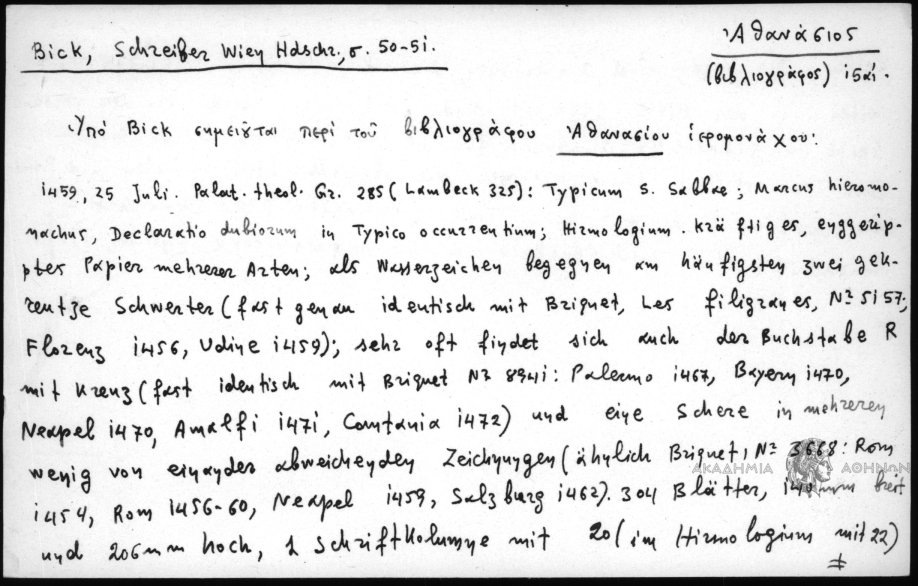 Bick, Schreiber Wien Hdschr., σ. 50-51.
Ἀθανάσιος
(βιβλιογράφος) ις αἰ.
Ὑπὸ Bick σημειοῦται περὶ τοῦ βιβλιογράφου Ἀθανασίου ἱερομονάχου:
1459, 25 Juli. Palat. theol. Gr. 285 (Lambeck 325): Typicum S. Sabbae; Marcus hieromo-
nachus, Declaratio dubiorum in Typico occurrentium; Hirmologium. Kräftiges, enggerip-
ptes Papier mehrerer Arten; als Wasserzeichen begegnen am häufigsten zwei gek-
reutze Schwerter (fast genau identisch mit Briquet, Les filigranes, Nº 5157:
Florenz 1456, Udine 1459); sehr oft findet sich auch der Buchstabe R
mit Kreuz (fast identisch mit Briquet Nº 8941: Palermo 1467, Bayern 1470,
Neapel 1470, Amalfi 1471, Cantania 1472) und eine Schere in mehreren
wenig von einander abweichenden Zeichnungen (ähnlich Briquet, Nº 3668: Rom
1454, Rom 1456-60, Neapel 1459, Salzburg 1462). 304 Blätter, breit
und 206mm hoch, 1 Schriftkolumne mit 20 (im Hirmologium mit 22)
ΑΚΑΔΗΜΙΑ ΑΘΗΝΩΝ